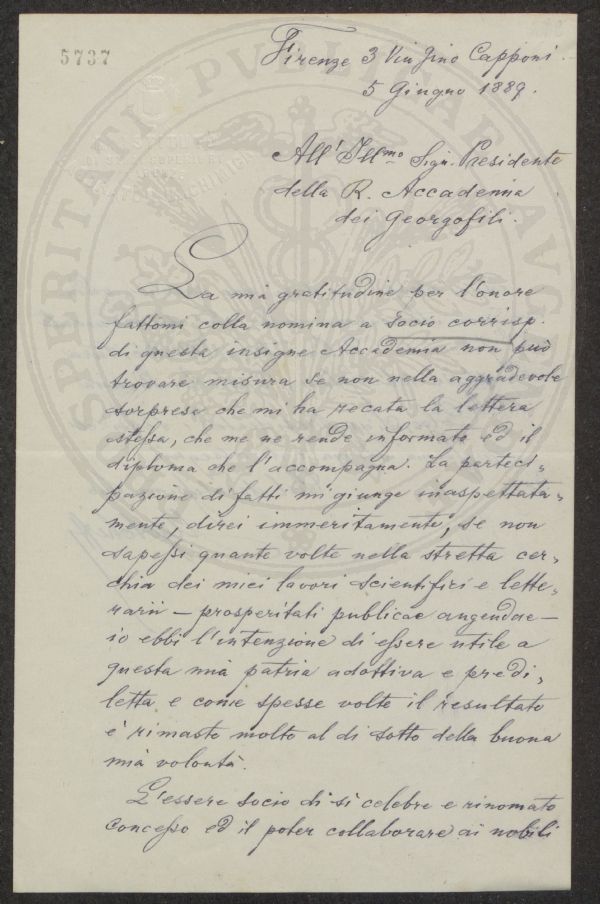 5737
Firenze 3 Via Gino Capponi.
5 Giugno 1889.
All' Illmo Sign. Presidente
della R. Accademia
dei Georgofili.
La mia gratitudine per l'onore
fattomi colla nomina a Socio corrisp.
di questa insigne Accademia non può
trovare misura se non nella aggradevole
sorpresa che mi ha recata la lettera
stessa, che me ne rende informato ed il
diploma che l'accompagna. La parteci-
pazione di fatti mi giunge inaspettata-
mente, direi immeritamente, se non
sapessi quante volte nella stretta cer-
chia dei miei lavori scientifici e lette-
rarii – prosperitati publicae augendae –
io ebbi l'intenzione di essere utile a
questa mia patria adottiva e predi-
letta e come spesse volte il resultato
è rimasto molto al di sotto della buona
mia volontà.
L'essere socio di sì celebre e rinomato
concesso ed il poter collaborare ai nobili